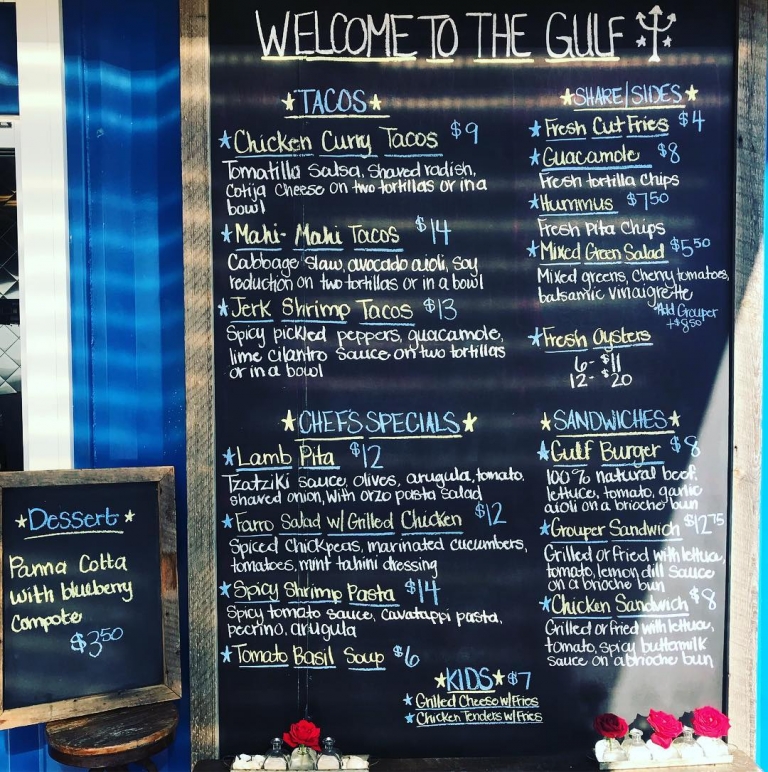 WELCOME TO THE GULF
TACOS
Chicken Curry Tacos $9
Tomatilla Salsa, shaved radish,
Cotija Cheese on two tortillas or in a
bowl
Mahi-Mahi Tacos $14
Cabbage slaw, avocado aioli, soy
reduction on two tortillas or in a bowl
Jerk Shrimp Tacos $13
Spicy pickled peppers, guacamole,
lime cilantro sauce on two tortillas
or in a bowl
SHARE/SIDES
Fresh Cut Fries $4
Guacamole $8
Fresh tortilla chips
Hummus $7.50
Fresh Pita Chips
Mixed Green Salad $5.50
Mixed greens, cherry tomatoes,
balsamic vinaigrette
*Add Grouper
+$8.50
Fresh Oysters
6- $11
12- $20
CHEFS SPECIALS
Lamb Pita $12
Tzatziki sauce, olives, arugula, tomato,
shaved onion, with orzo pasta salad
Farro Salad w/ Grilled Chicken $12
Spiced chickpeas, marinated cucumbers,
tomatoes, mint tahini dressing
Spicy Shrimp Pasta $14
Spicy tomato sauce, cavatappi pasta,
pecrino, arugula
Tomato Basil Soup $6
SANDWICHES
Gulf Burger $8
100% natural beef,
lettuce, tomato, garlic
aioli on a brioche bun
Grouper Sandwich $12.75
Grilled or fried with lettuce,
tomato, lemon dill sauce
on a brioche bun
Chicken Sandwich $8
Grilled or fried with lettuce,
tomato, spicy buttermilk
sauce on a brioche bun
KIDS $7
Grilled Cheese w/ Fries
Chicken Tenders w/ Fries
Dessert
Panna Cotta
with blueberry
compote
$3.50